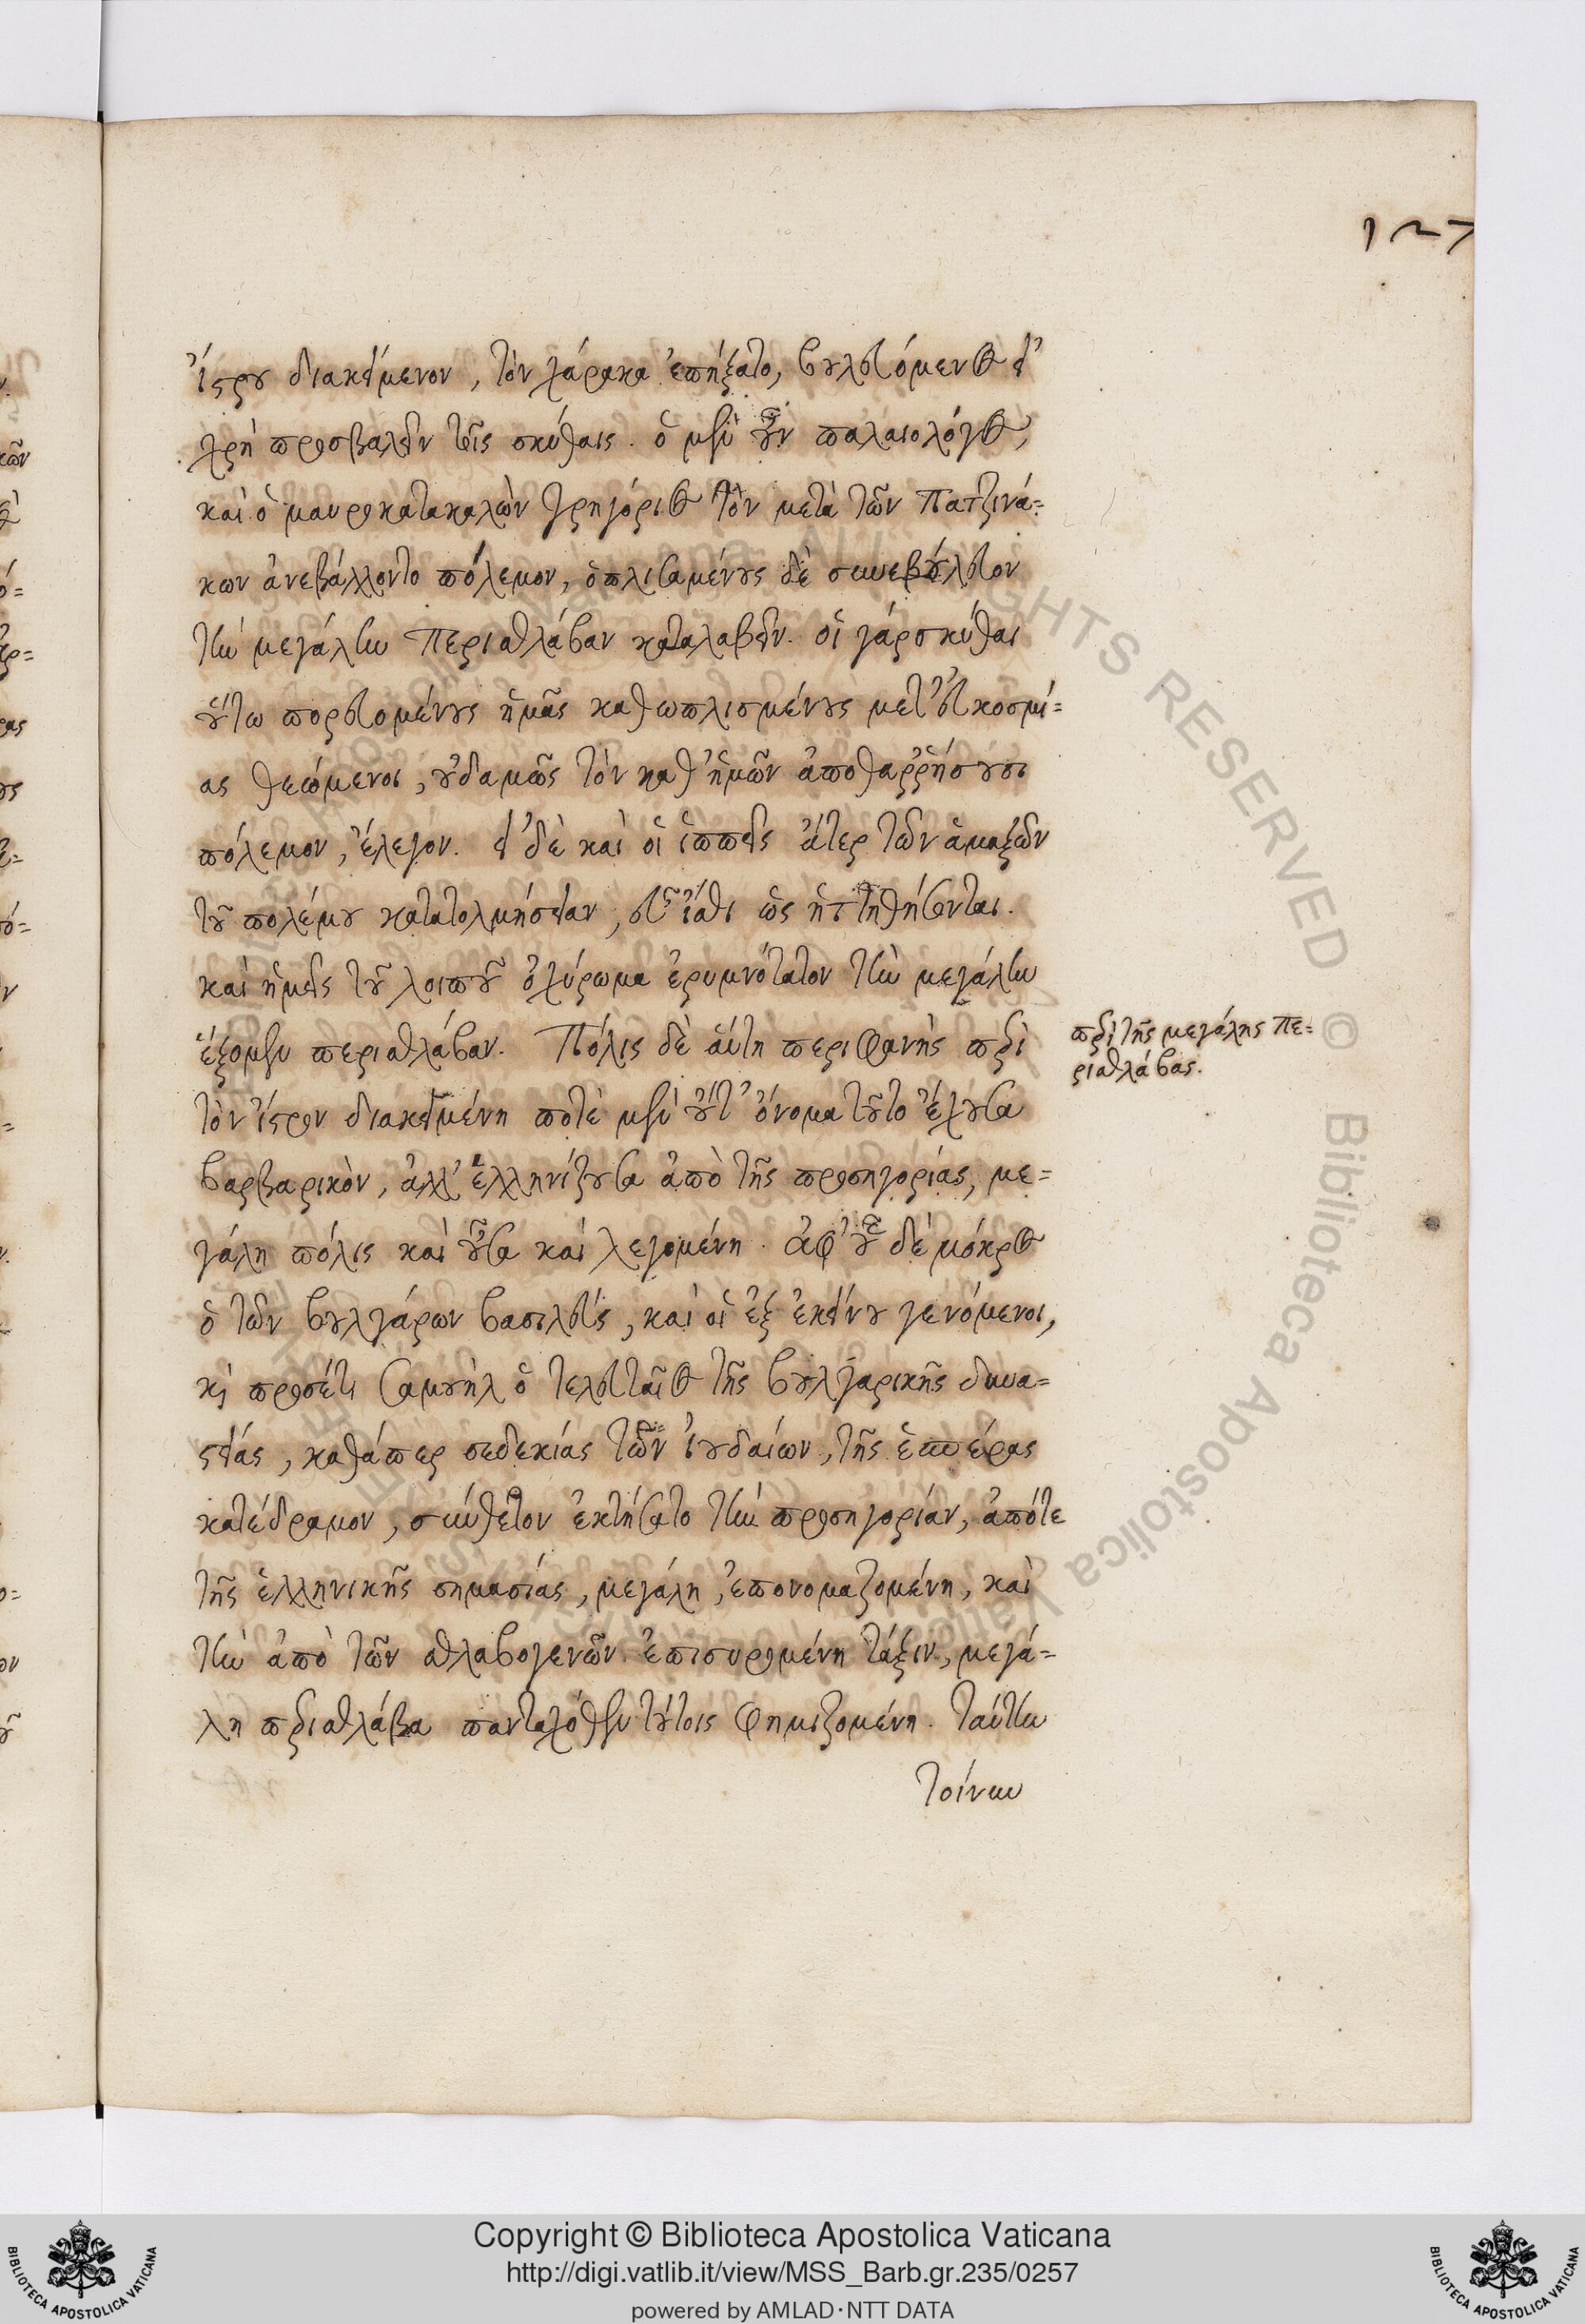 127
Ἴστρου διακείμενον, τὸν χάρακα ἐπήξατο, βουλευόμενος εἰ
χρὴ προσβαλεῖν τοῖς σκύθαις. ὁ μὲν οὖν παλαιολόγος,
καὶ ὁ μαυροκατακαλὼν γρηγόριος τὸν μετὰ τῶν Πατζινά=
κων ἀνεβάλλοντο πόλεμον, ὁπλισαμένους δὲ συνεβούλευον
τὴν μεγάλην Περισθλάβαν καταλαβεῖν. οἱ γάρ σκύθαι
οὕτω πορευομένους ἡμᾶς καθωπλισμένους μετ' εὐκοσμί=
ας θεώμενοι, οὐδαμῶς τὸν καθ' ἡμῶν ἀποθαῤῥήσουσι
πόλεμον, ἔλεγον. εἰ δὲ καὶ οἱ ἱππεῖς ἄτερ τῶν ἁμαξῶν
τοῦ πολέμου κατατολμήσειαν, εὖ ἴσθι ὡς ἡττηθήσονται.
καὶ ἡμεῖς τοῦ λοιποῦ ὀχύρωμα ἐρυμνότατον τὴν μεγάλην
ἕξομεν περισθλάβαν. Πόλις δὲ αὕτη περιφανὴς περὶ
τὸν ἴστρον διακειμένη ποτὲ μὲν οὐτ' ὄνομα τοῦτο ἔχουσα
βαρβαρικὸν, ἀλλ' ἑλληνίζουσα ἀπὸ τῆς προσηγορίας, με=
γάλη πόλις καὶ οὖσα καὶ λεγομένη. ἀφ' οὗ δὲ μόκρος
ὁ τῶν βουλγάρων βασιλεύς, καὶ οἱ ἐξ ἐκείνου γενόμενοι,
καὶ προσέτι σαμουὴλ ὁ τελευταῖος τῆς βουλγαρικῆς δυνα=
στείας, καθάπερ σεδεκίας τῶν ἰουδαίων, τῆς ἑσπέρας
κατέδραμον, σύνθετον ἐκτήσατο τὴν προσηγορίαν, ἀπότε
τῆς ἑλληνικῆς σημασίας, μεγάλη, ἐπονομαζομένη, καὶ
τὴν ἀπὸ τῶν σθλαβογενῶν ἐπισυρομένη τάξιν, μεγά=
λη περισθλάβα πανταχόθεν τούτοις φημιζομένη. ταύτην
τοίνυν
περὶ τῆς μεγάλης Πε=
ρισθλάβας.
Copyright © Biblioteca Apostolica Vaticana
http://digi.vatlib.it/view/MSS_Barb.gr.235/0257
powered by AMLAD·NTT DATA